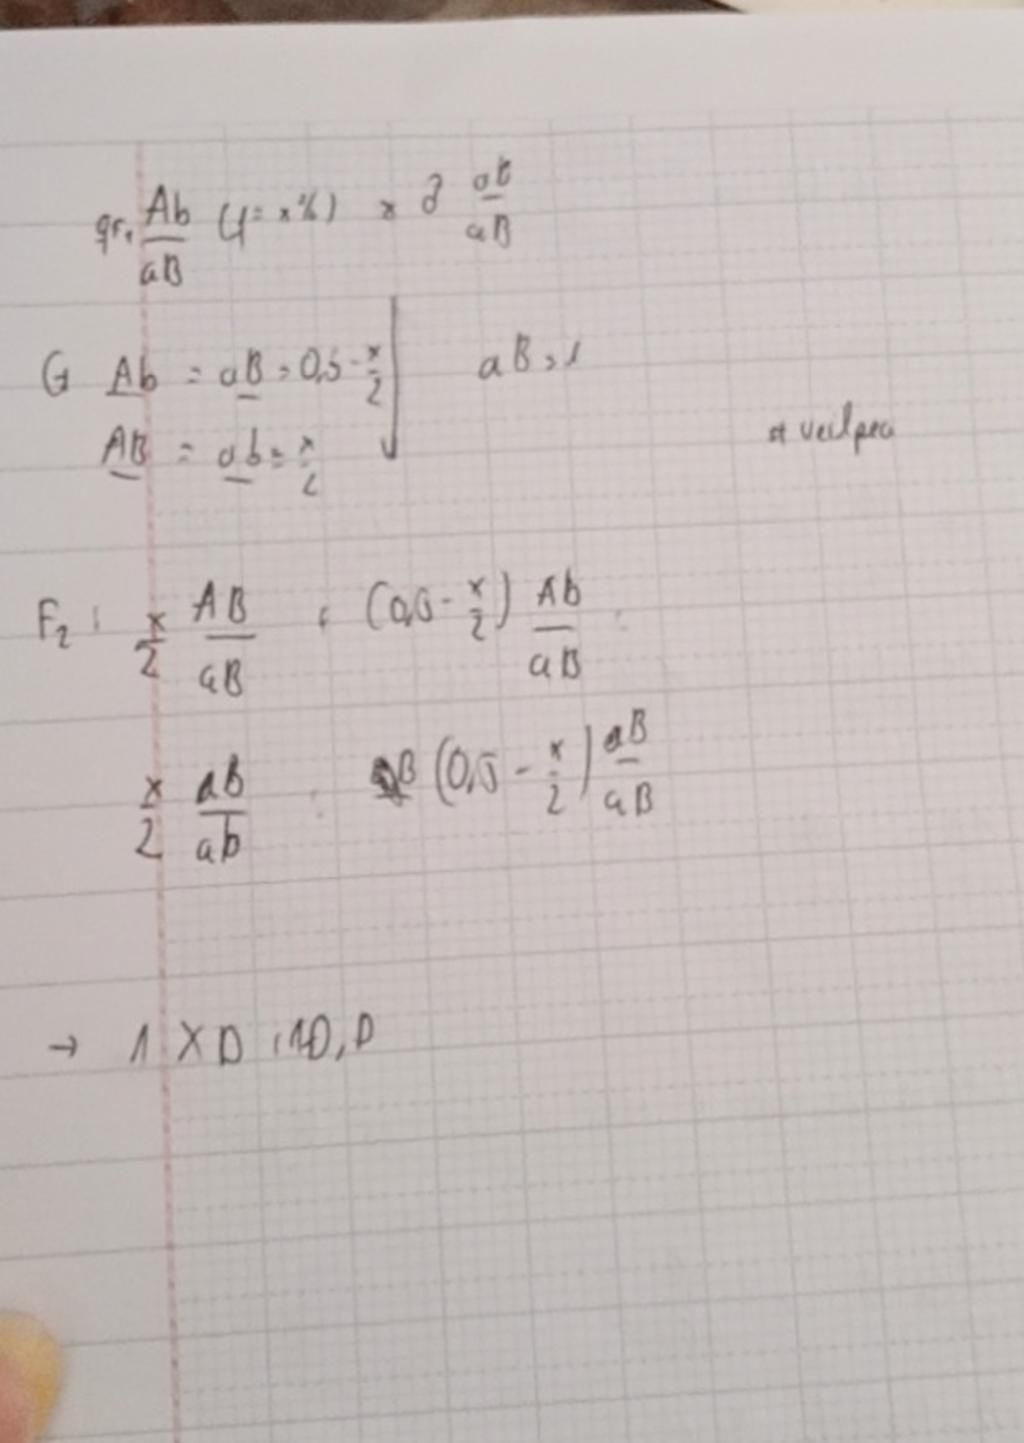 Ab (f = x%) x ♂ ab
aB aB
G Ab = aB = 0,5 - x/2 aB = 1
AB = ab = x/2
F2: x/2 AB/aB : (0,5 - x/2) Ab/aB :
x/2 aB/ab : B (0,5 - x/2) aB/aB
→ 1 X D